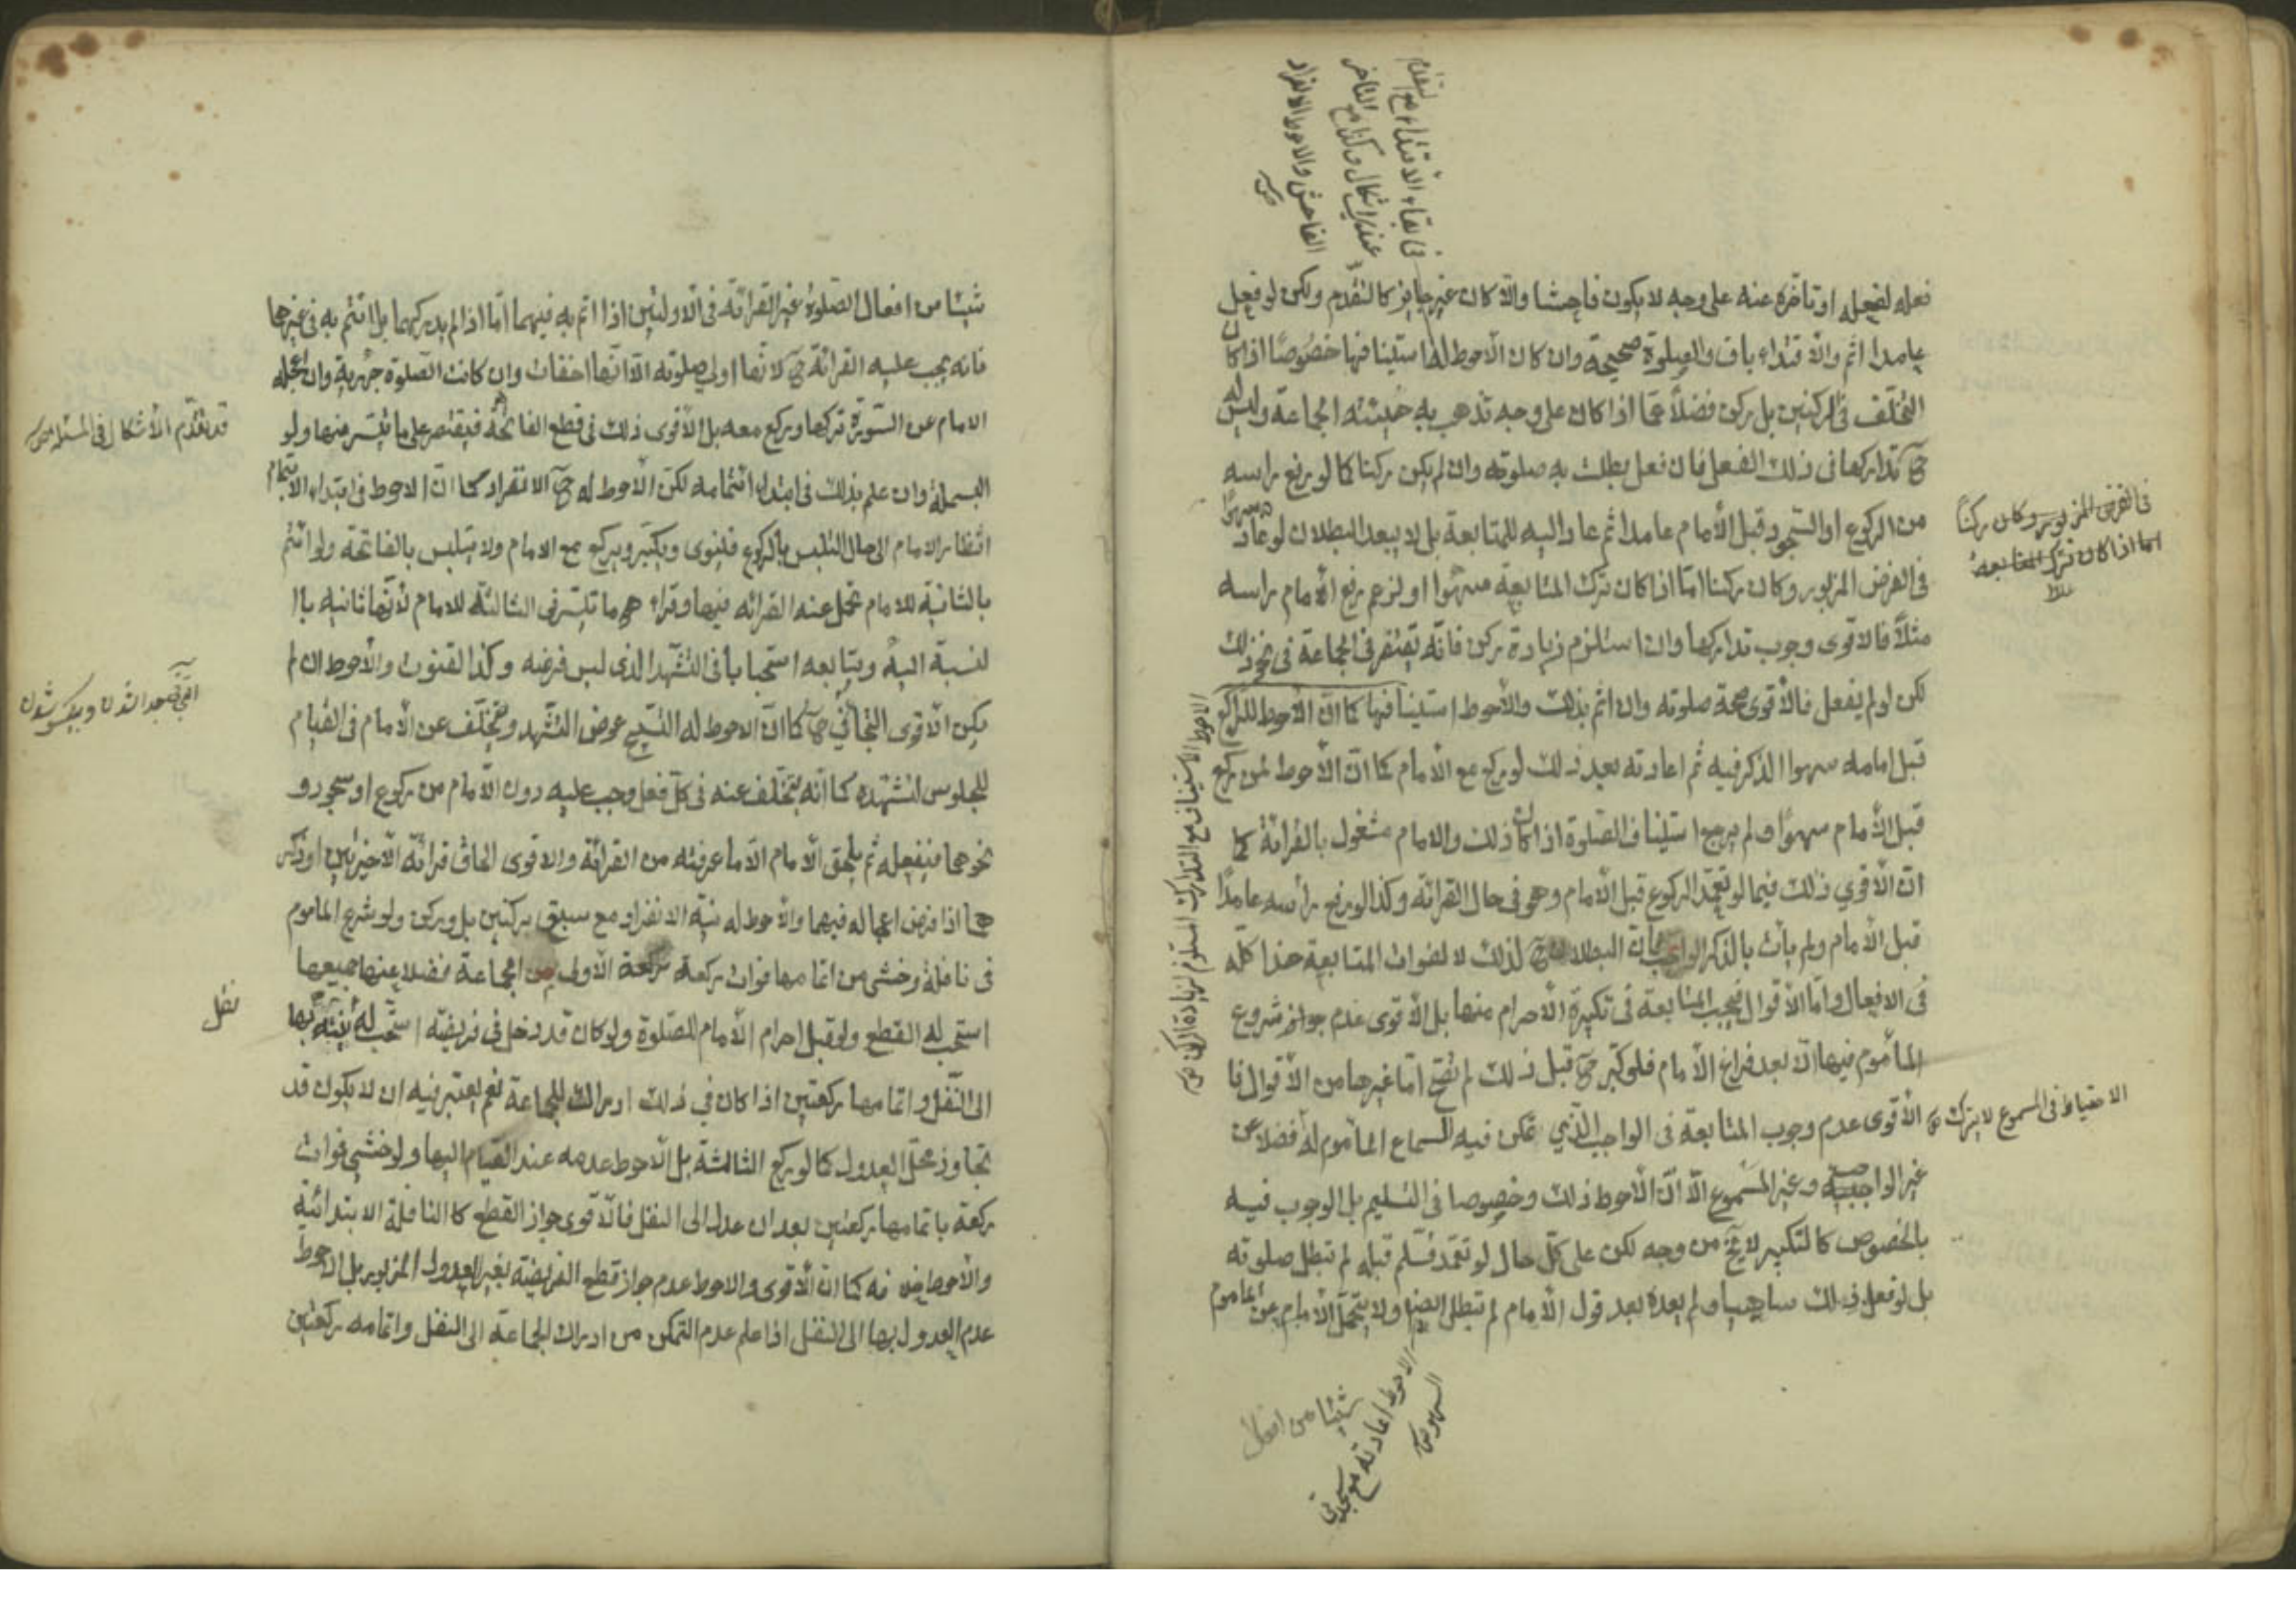 فعله لفعله او تاخره عنه على وجه لا يكون فاحشا والا كان غير جايز كالتقدم ولكن لو فعل
عامدا اثم والاقتداء باق والصلوة صحيحة وان كان الأحوط له استينافها خصوصًا اذا كان
التخلف في الركنين بل ركن فضلاً عما اذا كان على وجه تذهب به هيئته الجماعة وليس له
ح تداركها في ذلك الفعل فان فعل بطلت به صلوته وان لم يكن ركنا كما لو رفع راسه
من الركوع او السجود قبل الأمام عامدا ثم عاد اليه للمتابعة بل لا يبعد البطلان لو عاد سهوًا
في الفرض المزبور وكان ركنا امّا اذا كان ترك المتابعة سهوا او لزعم رفع الأمام راسه
مثلاً فالاقوى وجوب تداركها وان استلزم زيادة ركن فانّه يغتفر في الجماعة في نحو ذلك
لكن لو لم يفعل فالأقوى صحة صلوته وان اثم بذلك والأحوط استينافها كما انّ الأحوط للراكع
قبل امامه سهوا الذكر فيه ثم اعادته بعد ذلك لو ركع مع الأمام كما انّ الأحوط لمن ركع
قبل الأمام سهوًا ولم يرجع استيناف الصلوة اذا كان ذلك والامام مشغول بالقرائة كما
انّ الأقوي ذلك فيما لو تعمّد الركوع قبل الأمام وهو في حال القرائه وكذا لو رفع رأسه عامدًا
قبل الأمام ولم يأت بالذكر الواجب فان البطلان ح لذلك لا لفوات المتابعة هذا كلّه
في الافعال وامّا الأقوال فيجب المتابعة في تكبيرة الأحرام منها بل الأقوى عدم جواز شروع
المأموم فيها الّا بعد فراغ الأمام فلو كبّر ح قبل ذلك لم تصح امّا غيرها من الأقوال فا
الأقوى عدم وجوب المتابعة في الواجب الّذي تمكن فيه السماع المأموم له فضلاً عن
غير الواجب وغير المسموع الّا انّ الأحوط ذلك وخصوصا في التسليم بل الوجوب فيه
بالخصوص كالتكبير لا يخ من وجه لكن على كلّ حال لو تعمّد فسلّم قبله لم تبطل صلوته
بل لو فعل ذلك ساهيا ولم يعده بعد قول الأمام لم تبطل ايضا ولا يتحمّل الأمام عن المأموم
في بقاء الاقتداء مع التقدم
عندى اشكال وكذا مع التاخر
الفاحش والاحوط الانفراد
في الفرض المزبور وكان ركنًا
اما اذا كان ترك المتابعة
الاحوط الاستيناف مع التدارك المستلزم لزيادة الركن
الاحتياط في المسموع لا يترك
الاحوط اعادته مع سجدتى
السهو
شيئا من افعال
شيئا من افعال الصلوة غير القرائه في الأولتين اذا ائتم به فيهما امّا اذا لم يدركهما بل ائتم به في غيرها
فانه يجب عليه القرائة ح لانّها اولي صلوته الّا انّها اخفات وان كانت الصلوة جهرية وان اعجله
الامام عن السورة تركها وركع معه بل الأقوى ذلك في قطع الفاتحة فيقتصر على ما تيسّر منها ولو
البسملة وان علم بذلك في ابتداء ائتمامه لكن الأحوط له ح الانفراد كما انّ الاحوط في ابتداء الائتمام
انتظار الامام الى حال التلبس بالركوع فلينوى ويكبّر ويركع مع الامام ولا يتلبس بالفاتحة ولو ائتم
بالثانية للامام تحمّل عنه القرائه فيها وقراء هو ما تيسّر في الثالثة للامام لأنّها ثانيه باا
لنسبة اليه ويتابعه استحبابا في التشهّد الذى ليس فرضه وكذا القنوت والأحوط ان لم
يكن الأقوى التجافي ح كما انّ الاحوط له التسبيح عوض التشهّد ويتخلّف عن الأمام في القيام
للجلوس لتشهّده كما انّه يتخلّف عنه في كلّ فعل وجب عليه دون الأمام من ركوع او سجود و
نحوهما فيفعله ثم يلحق الأمام الّا ما عرفته من القرائة والاقوى الحاق قرائة الأخيرتين او ذكر
هما اذا فرض اعجاله فيهما والأحوط له نية الانفراد مع سبق بركنين بل وركن ولو شرع الماموم
في نافلة وخشى من اتمامها فوات ركعة من الجماعة فضلا عنها جميعها
استحب له القطع ولو قبل احرام الأمام للصّلوة ولو كان قد دخل في فريضة استحب له
الى النّفل واتمامها ركعتين اذا كان في ذلك ادراك للجماعة نعم يعتبر فيه ان لا يكون قد
تجاوز محلّ العدول كما لو ركع الثالثة بل الأحوط عدمه عند القيام اليها ولو خشي فوات
ركعة باتمامها ركعتين بعد ان عدل الى النفل فالأقوى جواز القطع كالنافلة الابتدائية
والأحوط خلافه كما انّ الأقوى والاحوط عدم جواز قطع الفريضة بغير العدول المزبور بل الاحوط
عدم العدول بها الى النفل اذا علم عدم التمكن من ادراك الجماعة الى النفل واتمامه ركعتين
قد تقدّم الأشكال في المسئله
نقل